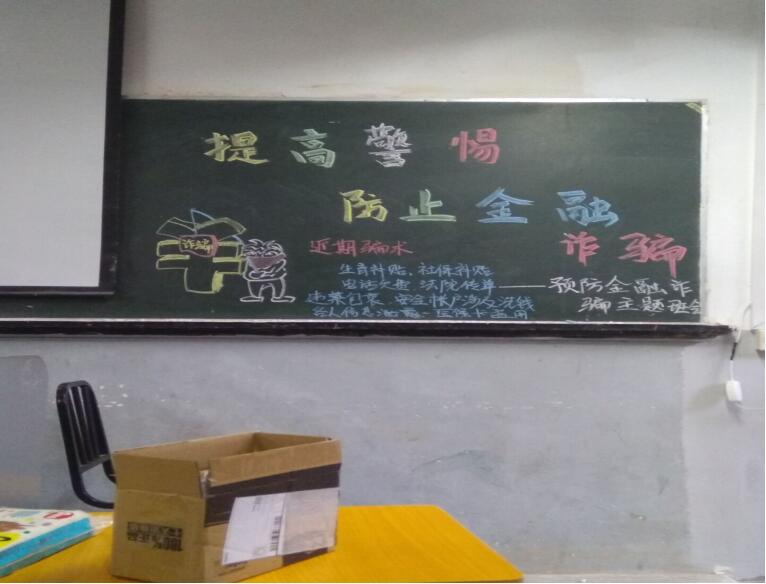 提高警惕
防止金融
诈骗
诈骗
近期骗术
生育补贴、社保补贴
电话欠费 法院传单
包裹 安全帐户涉及洗钱
——预防金融诈
骗主题班会